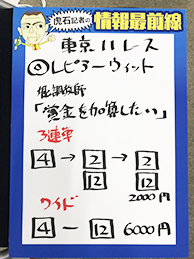 虎石記者の
情報最前線
東京11レス
◎レピアーウィット
「賞金を加算したい」
3連単
4→2→2
12 12
2000円
ワイド
4－12 6000円